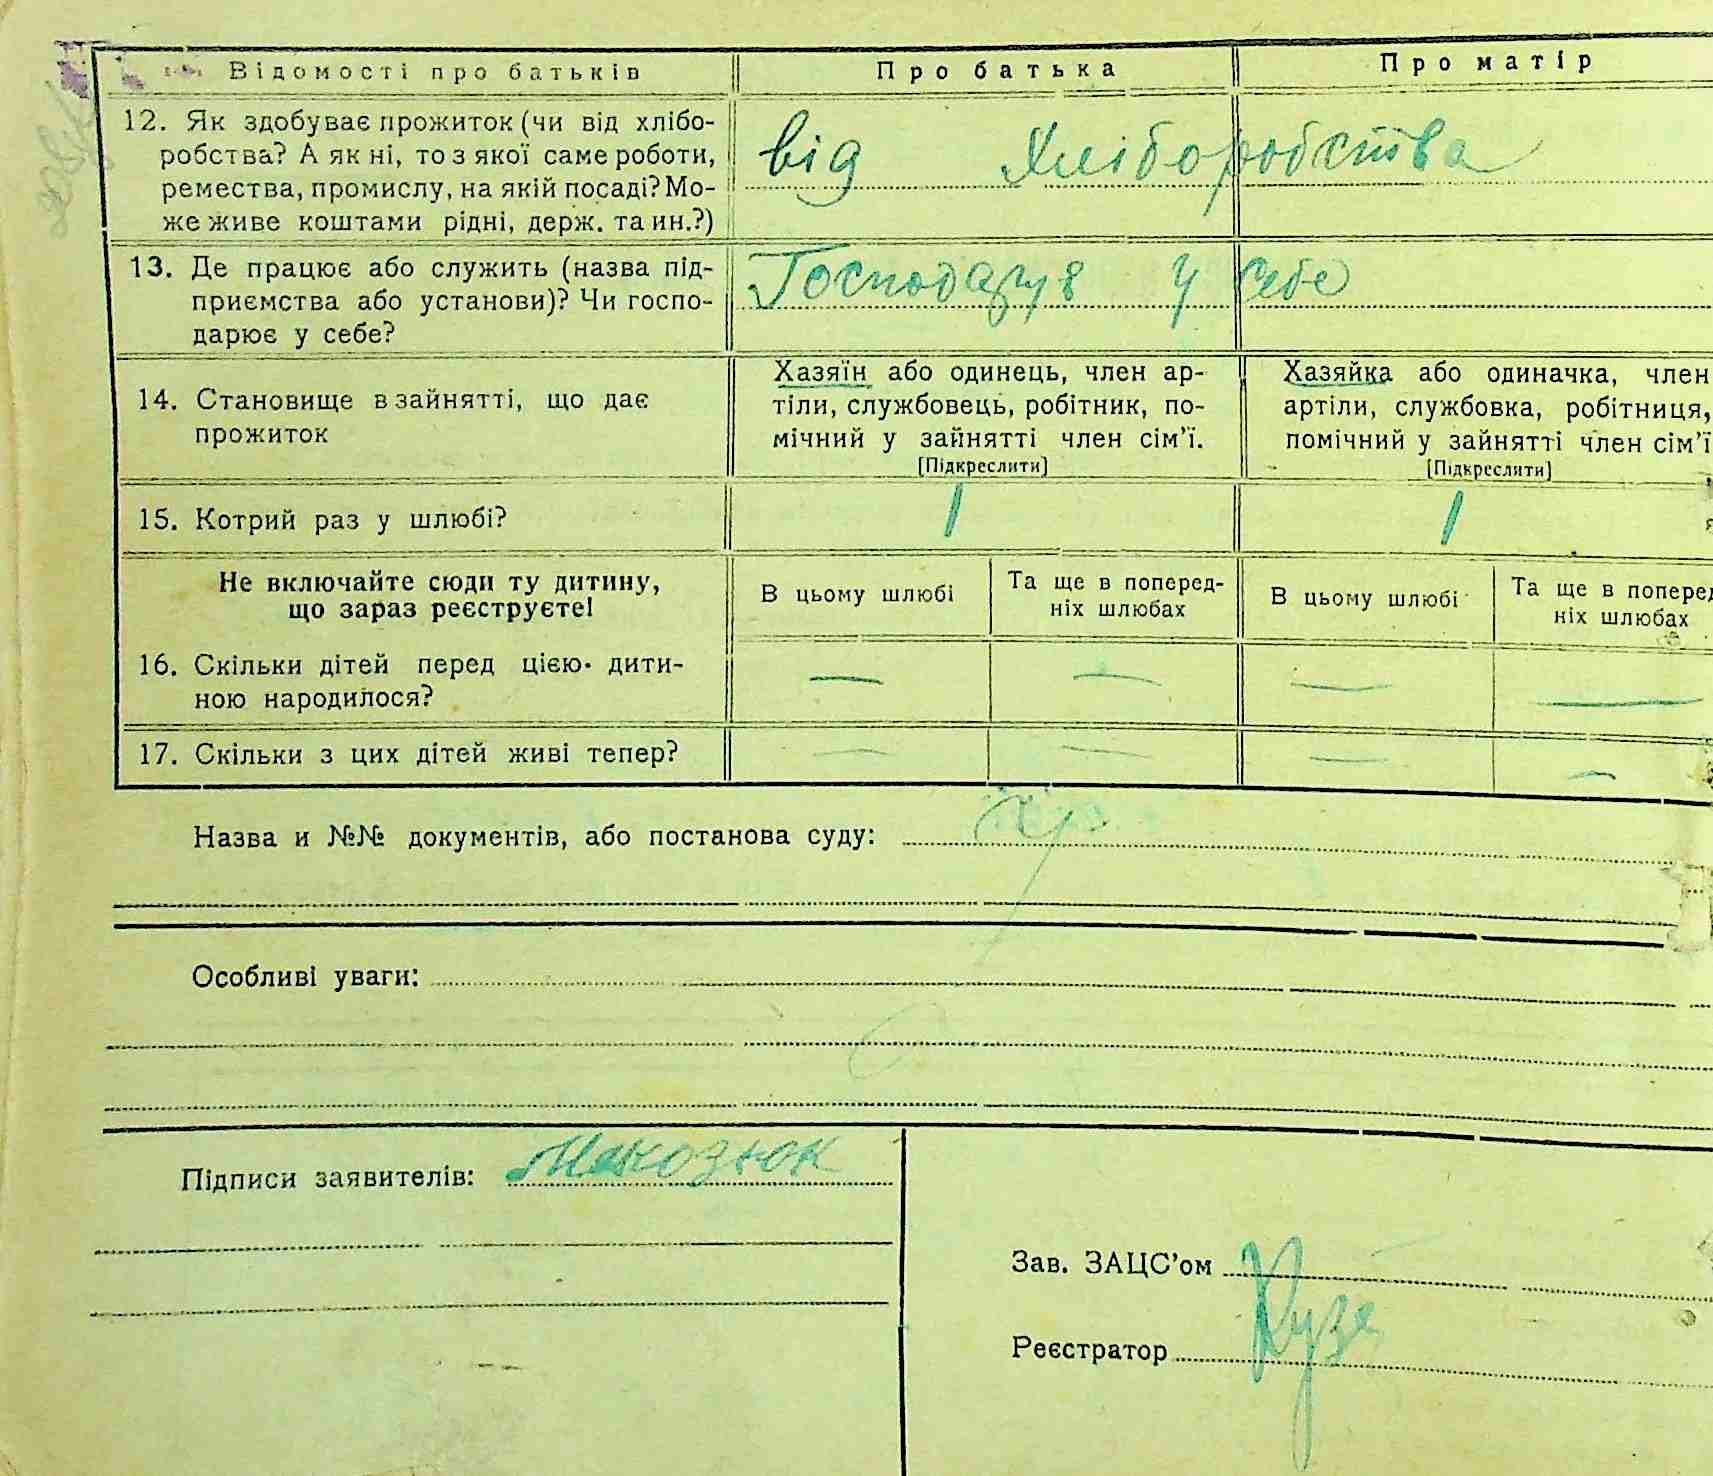 Відомості про батьків Про батька Про матір
12. Як здобуває прожиток (чи від хлібо-
робства? А як ні, то з якої саме роботи,
ремества, промислу, на якій посаді? Мо-
же живе коштами рідні, держ. та ин.?)
від хліборобства
13. Де працює або служить (назва під-
приємства або установи)? Чи госпо-
дарює у себе?
Господарув у себе
14. Становище в зайнятті, що дає
прожиток
Хазяїн або одинець, член ар-
тіли, службовець, робітник, по-
мічний у зайнятті член сім’ї.
[Підкреслити]
Хазяйка або одиначка, член
артіли, службовка, робітниця,
помічний у зайнятті член сім’ї
[Підкреслити]
15. Котрий раз у шлюбі? 1 1
Не включайте сюди ту дитину,
що зараз реєструєте!
В цьому шлюбі
Та ще в поперед-
ніх шлюбах
В цьому шлюбі
Та ще в поперед
ніх шлюбах
16. Скільки дітей перед цією дити-
ною народилося? — — — —
17. Скільки з цих дітей живі тепер? — — — —
Назва и №№ документів, або постанова суду:
Особливі уваги:
Підписи заявителів:
Зав. ЗАЦС’ом
Реєстратор